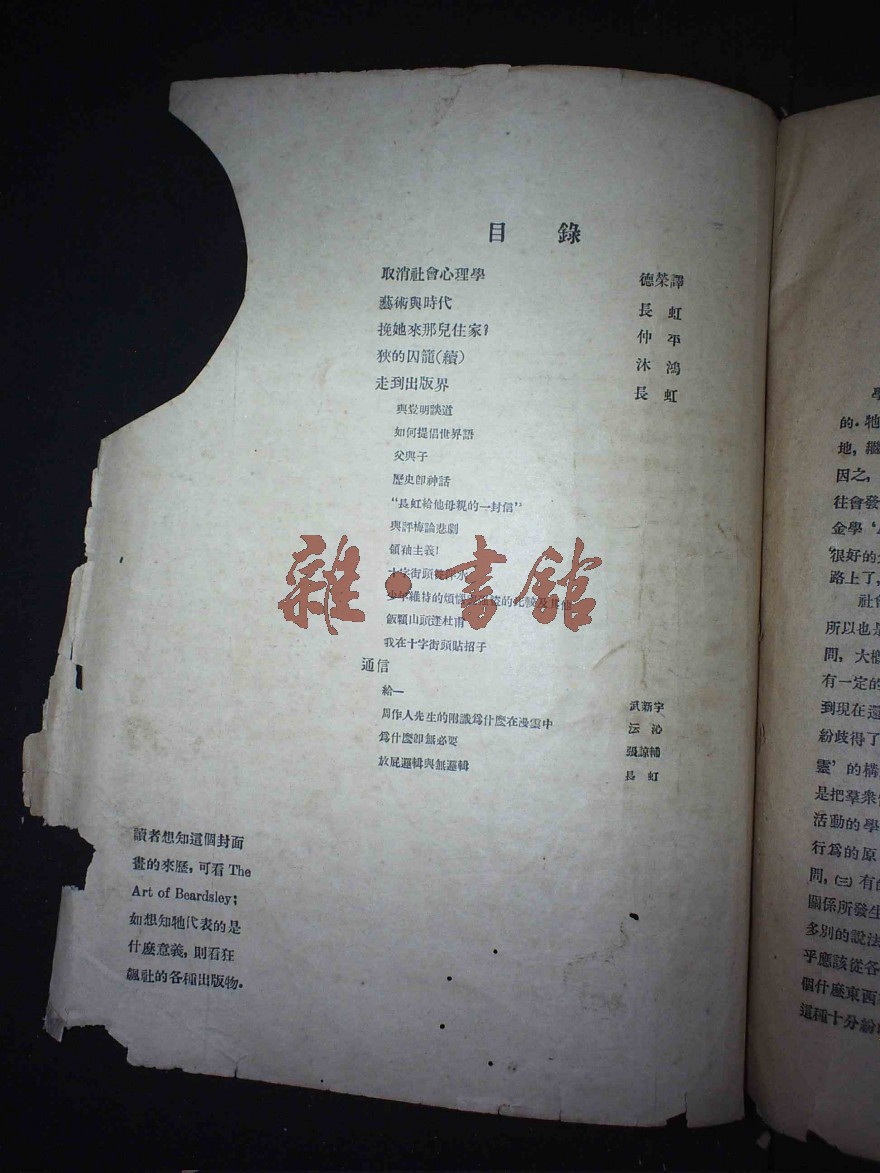 目 錄
取消社會心理學 德榮譯
藝術與時代 長虹
挽她來那兒住家? 仲平
狹的囚籠(續) 沐鴻
走到出版界 長虹
與豈明談道
如何提倡世界語
父與子
歷史卽神話
“長虹給他母親的一封信”
與評梅論悲劇
領袖主義!
十字街頭
少年維特的煩惱 及其他
飯顆山頭逢杜甫
我在十字街頭貼招子
通信
給一 武新宇
周作人先生的附識爲什麼在漫雲中 沄沁
爲什麼卽無必要 張諒輔
放屁邏輯與無邏輯 長虹
讀者想知這個封面
畫的來歷,可看 The
Art of Beardsley;
如想知牠代表的是
什麼意義,則看狂
飆社的各種出版物.
雜·書館
的.牠
地,繼
因之,
往會發
金學
很好的
路上了,
社會
所以也是
問,大概
有一定的
到現在還
紛歧得了
靈’的構
是把羣衆
活動的學
行爲的原
問,㈢有的
關係所發生
多別的說法
乎應該從各
個什麼東西
這種十分紛